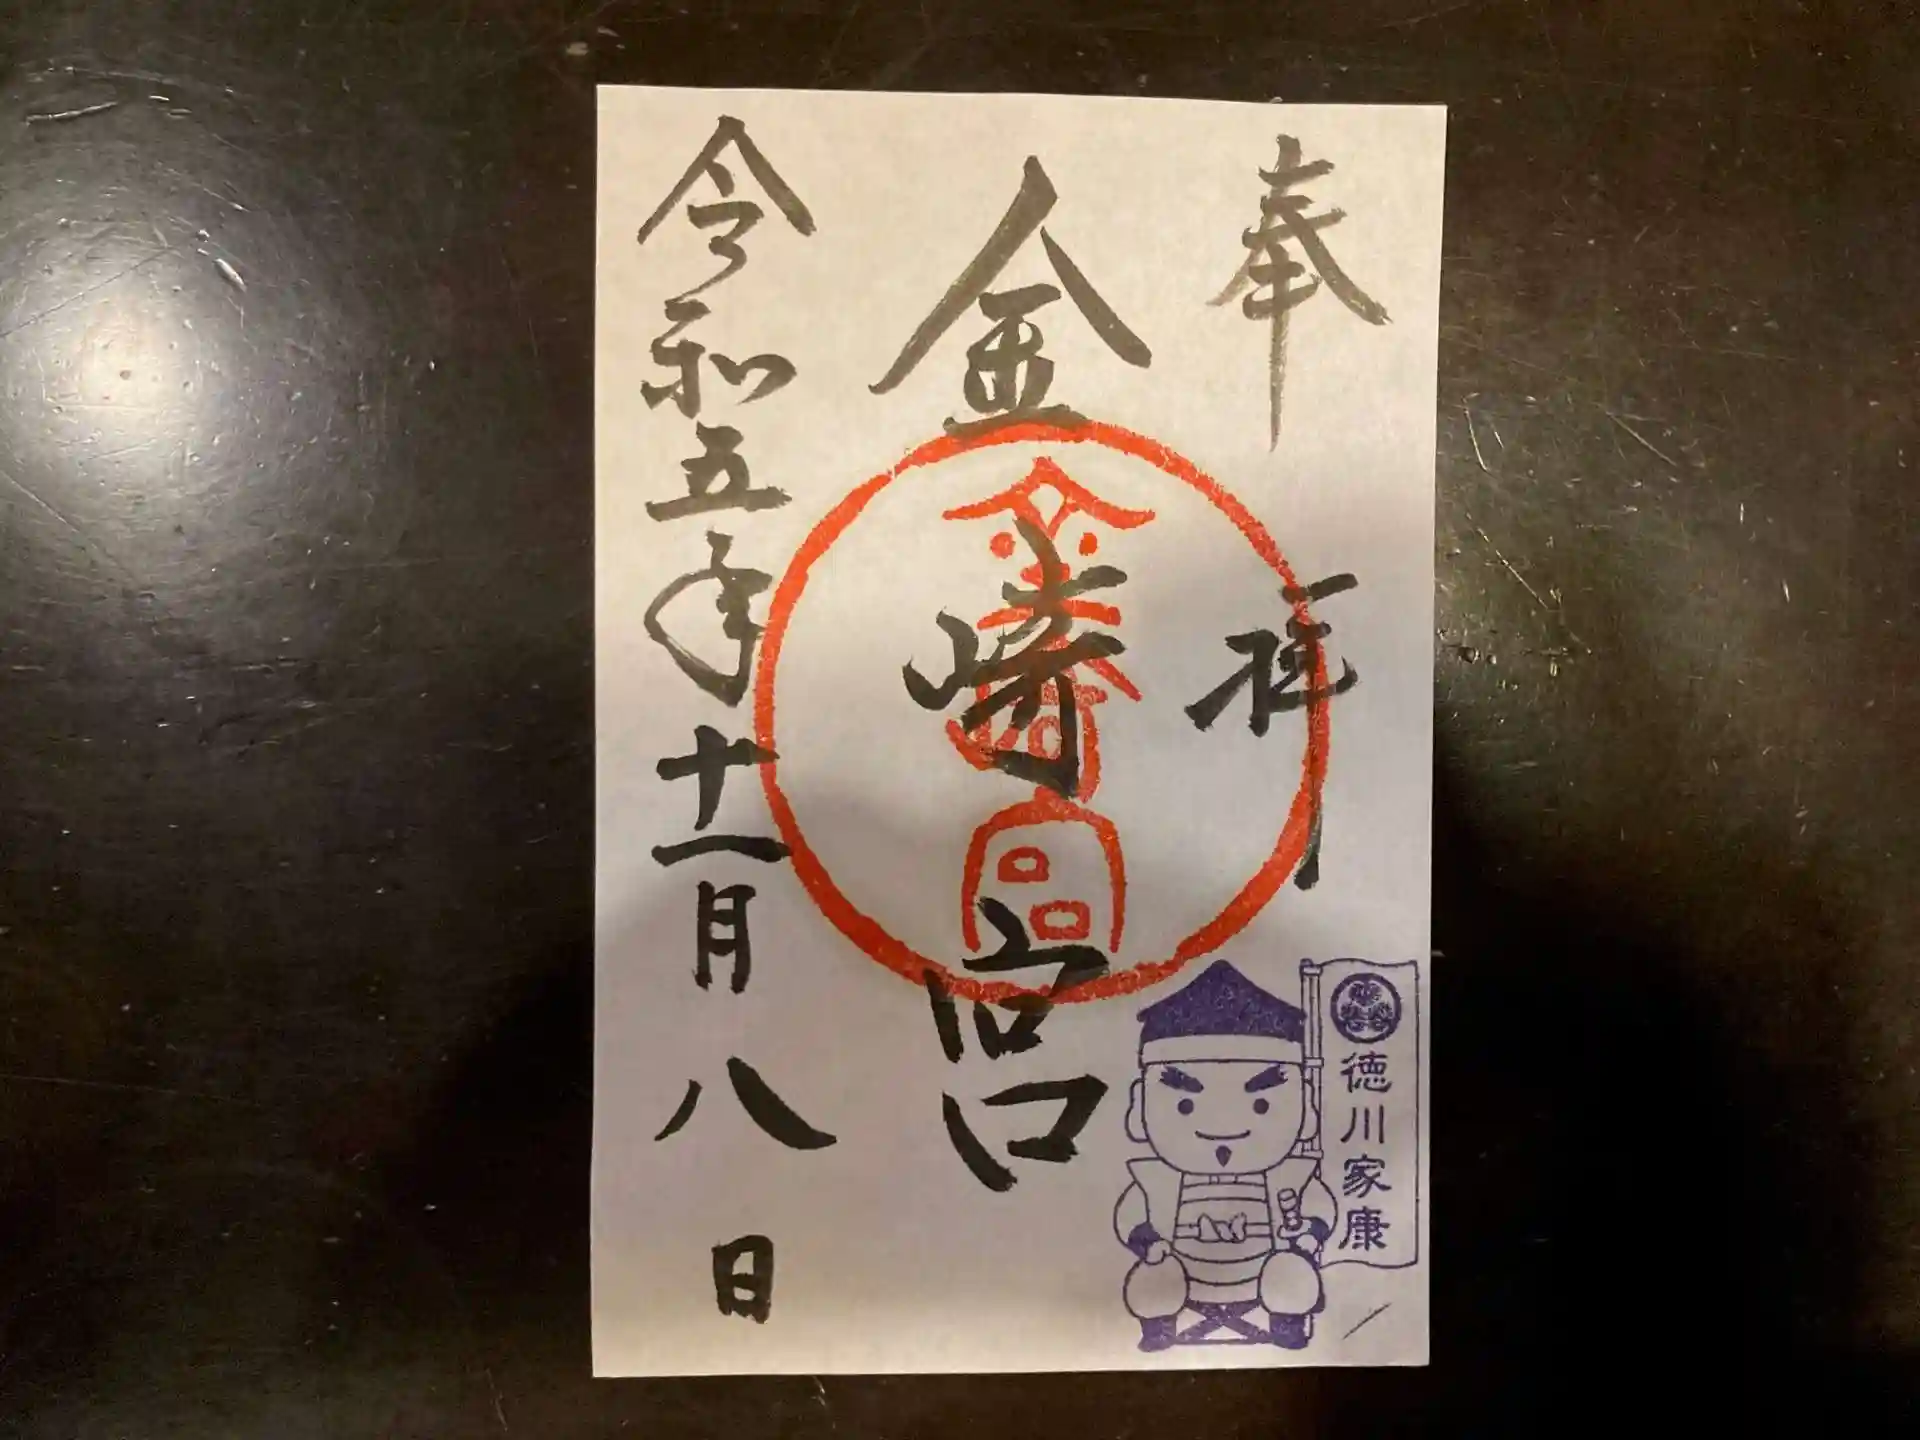 奉拝
金崎宮
金崎宮
令和五年十一月八日
徳川家康